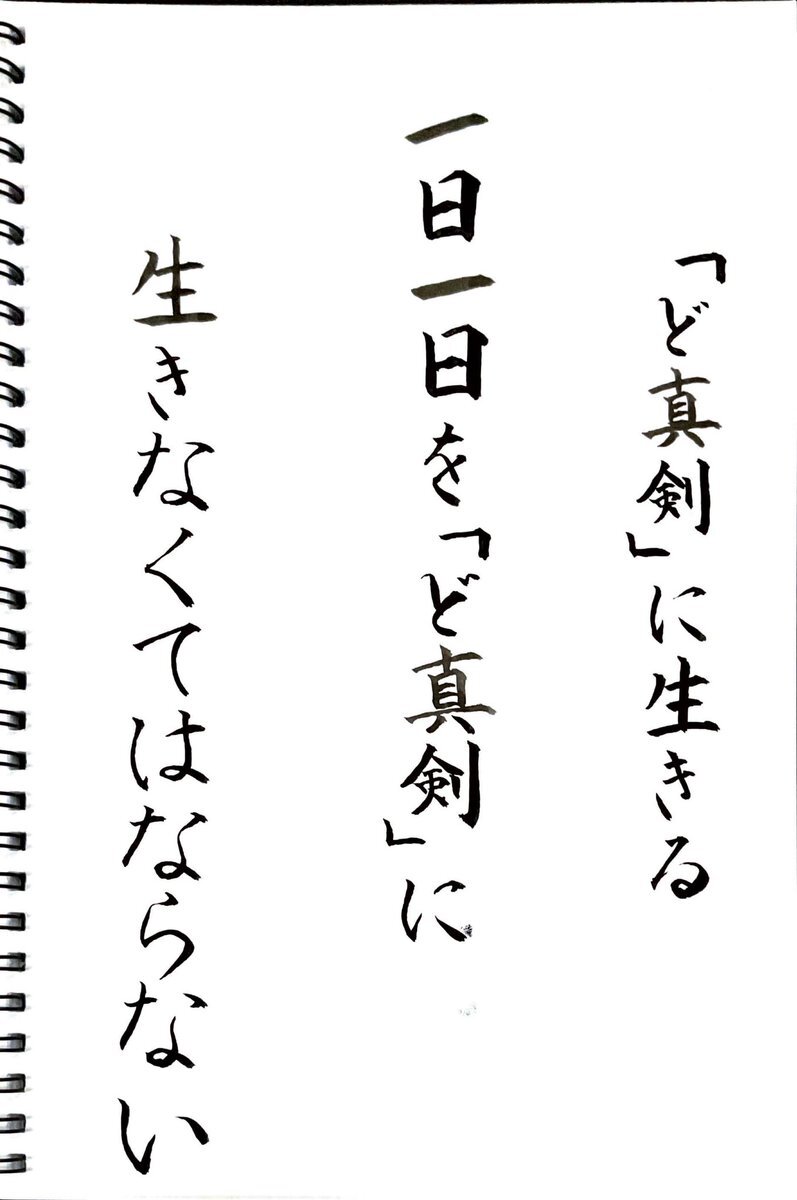 「ど真剣」に生きる
一日一日を「ど真剣」に
生きなくてはならない